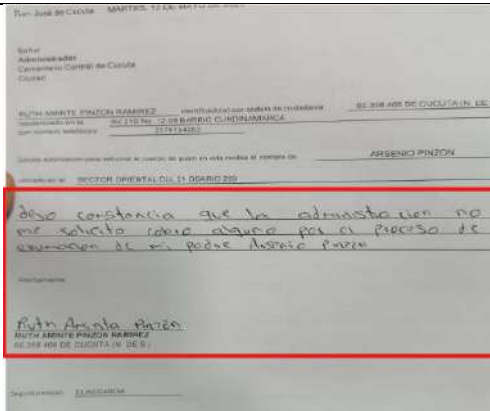 San José de Cúcuta MARTES, 12 DE MAYO DE
Señor
Administrador
Cementerio Central de Cúcuta
Ciudad
RUTH AMINTE PINZON RAMIREZ identificado(a) con cédula de ciudadanía DE CUCUTA (N. DE
BARRIO CUNDINAMARCA
con número telefónico
Solicito autorización para exhumar el cuerpo de quien en vida recibía el nombre de ARSENIO PINZON
ubicado en el SECTOR ORIENTAL
dejo constancia que la administracion no
me solicito cobro alguno por el proceso de
exumacion de mi padre Arsenio Pinzon
Atentamente
Ruth Aminta Pinzón
RUTH AMINTE PINZON RAMIREZ
DE CUCUTA (N. DE S.)
ELIAS GARCIA